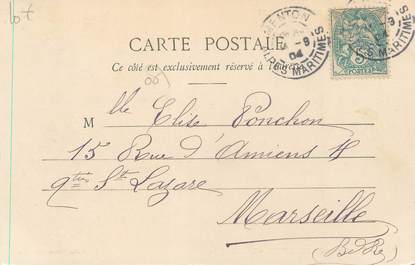 CARTE POSTALE
Ce côté est exclusivement réservé à l'adresse
MENTON
ALPES MARITIMES
9
04
5
POSTES
Mlle Elise Ponchon
15 Rue d'Amiens 15
qtier St Lazare
Marseille
(B.d.R.)